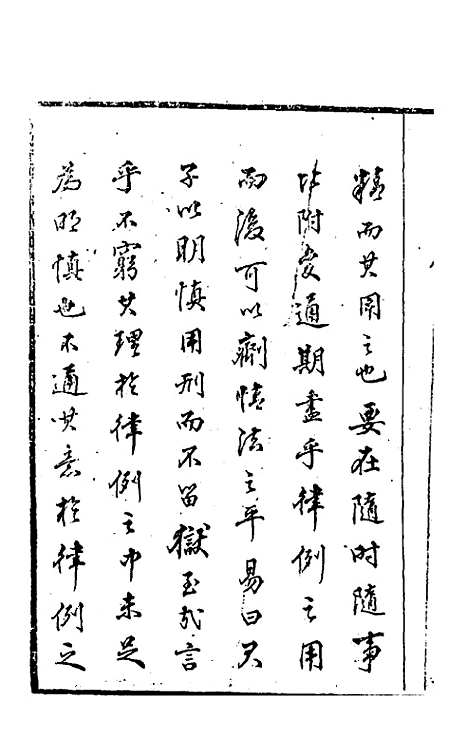 精而其用之也要在隨时隨事
比附变通期盡乎律例之用
而後可以劑情法之平易曰君
子以明慎用刑而不留獄至哉言
乎不窮其理於律例之中未足
為明慎也不通其意於律例之